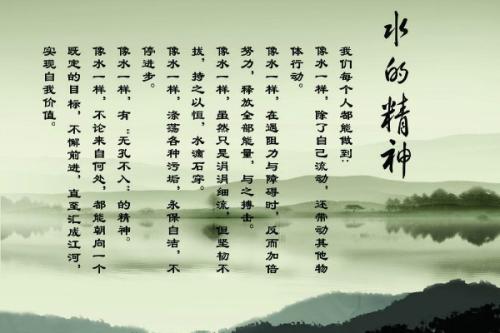 水的精神
我们每个人都能做到：
像水一样，除了自己流动，还带动其他物
体行动。
像水一样，在遇阻力与障碍时，反而加倍
努力，释放全部能量，与之搏击。
像水一样，虽然只是涓涓细流，但坚韧不
拔，持之以恒，水滴石穿。
像水一样，涤荡各种污垢，永保自洁，不
停进步。
像水一样，有“无孔不入”的精神。
像水一样，不论来自何处，都能朝向一个
既定的目标，不懈前进，直至汇成江河，
实现自我价值。